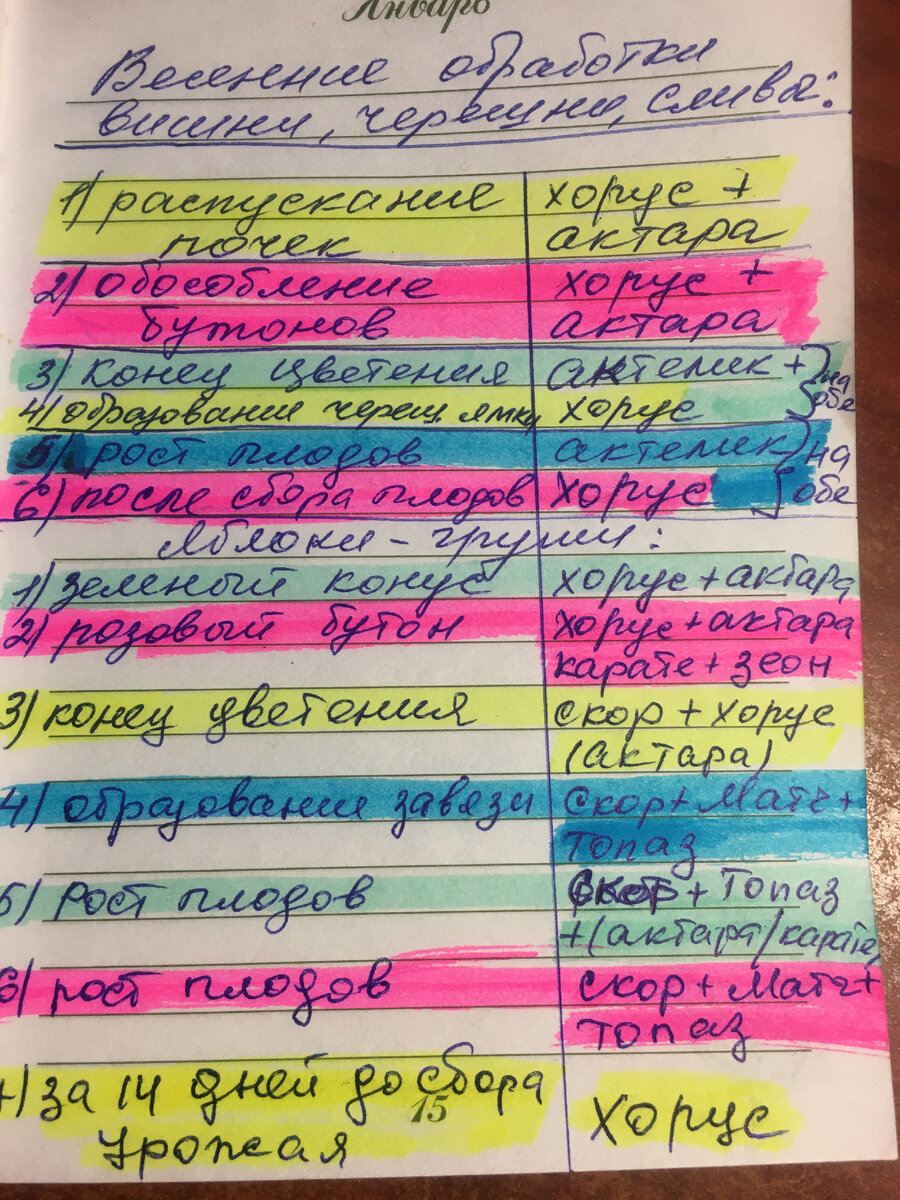 Январь
Весенние обработки
вишни, черешни, слива:
1) распускание хорус +
почек актара
2) обособление хорус +
бутонов актара
3) конец цветения актелик + } на
4) образовании череш. ямки хорус обе
5) рост плодов актелик } на
6) после сбора плодов хорус обе
Яблоки - груши:
1) зеленый конус хорус + актара
2) розовый бутон хорус + актара
карате + зеон
3) конец цветения скор + хорус
(актара)
4) образовании завязи скор + Матч +
топаз
5) Рост плодов скор + Топаз
+ (актара/карате)
6) рост плодов скор + Матч +
топаз
7) за 14 дней до сбора
15
урожая хорус